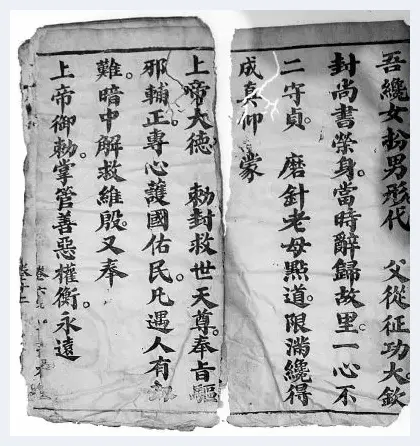 吾纔女扮男形代 父從征功大欽
封尚書榮身。當時辭歸故里。一心不
二守貞。 磨針老母點道。限滿纔得
成真仰 蒙
上帝大德 勅封救世天尊。奉旨驅
邪輔正。專心護國佑民。凡遇人有
難。暗中解救維殷。又奉
上帝御勅。掌管善惡權衡。永遠